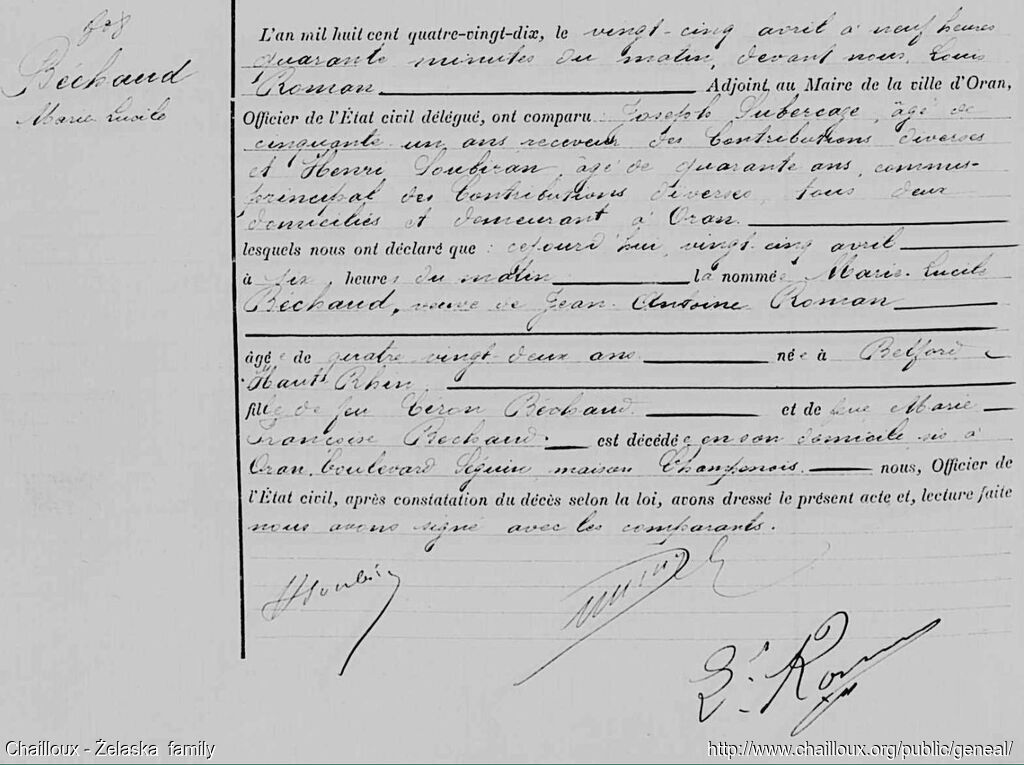 Béchaud
Marie Lucile
L'an mil huit cent quatre-vingt-dix, le vingt-cinq avril à neuf heures
quarante minutes du matin, devant nous Louis
Roman Adjoint au Maire de la ville d'Oran,
Officier de l'État civil délégué, ont comparu : Joseph Subercaze, âgé de
cinquante un ans receveur des Contributions diverses
et Henri Soubiran, âgé de quarante ans, commis
principal des Contributions diverses, tous deux
domiciliés et demeurant à Oran.
lesquels nous ont déclaré que : cejourd'hui, vingt-cinq avril
à heures du matin la nommée Marie-Lucile
Béchaud, veuve de Jean-Antoine Roman
âgée de quatre vingt-deux ans née à Belford
Haut Rhin,
fille de feu Béchaud et de feue Marie
Françoise Bechaud. est décédée en son domicile sis à
Oran, boulevard Séguin, maison Champenois. nous, Officier de
l'État civil, après constatation du décès selon la loi, avons dressé le présent acte et, lecture faite
nous avons signé avec les comparants.
L. Roman
Chailloux - Żelaska family
http://www.chailloux.org/public/geneal/